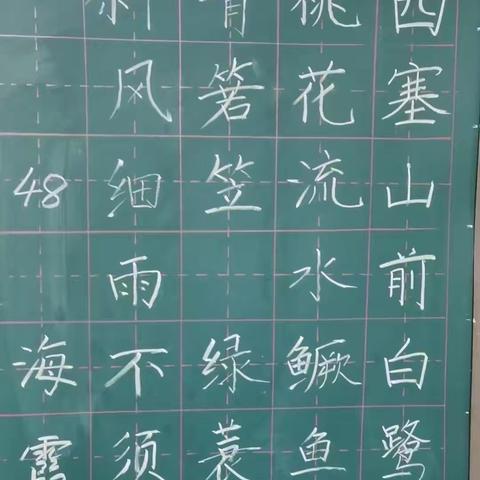 西塞山前白鹭
桃花流水鳜鱼
青箬笠 绿蓑
斜风细雨不须
48 海霞